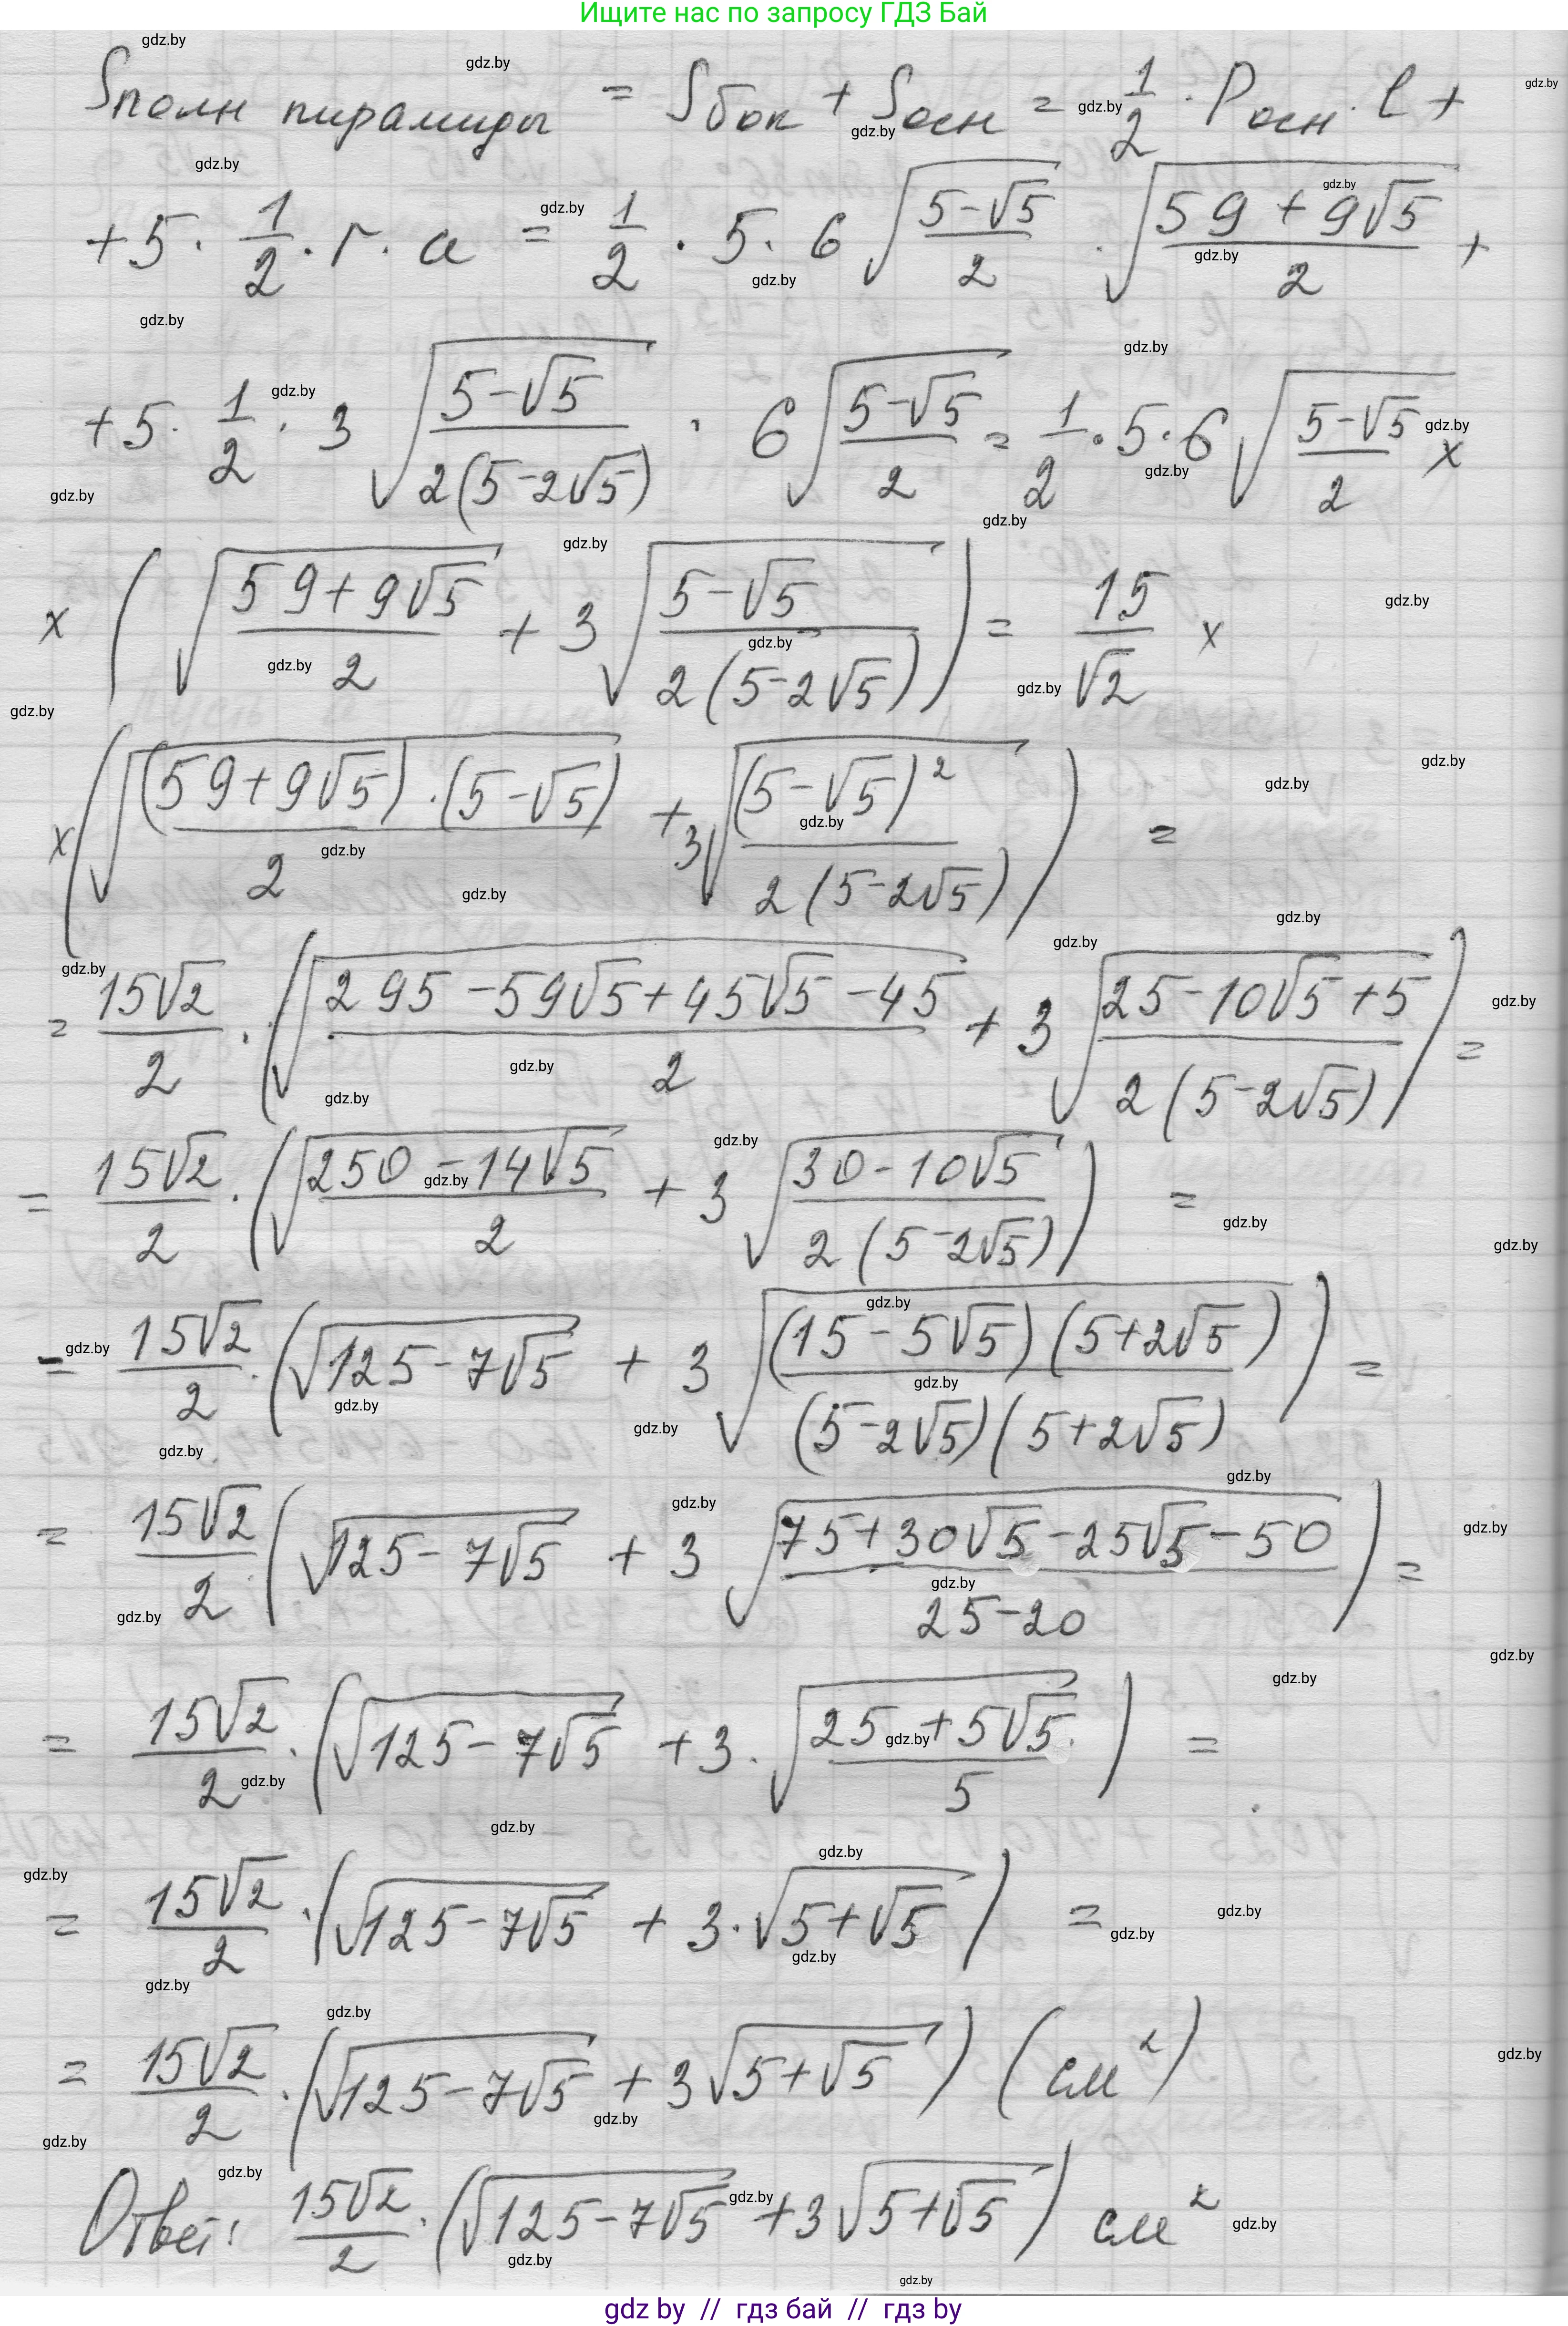 Ищите нас по запросу ГДЗ Бай
Sполн пирамиды = Sбок + Sосн = 1/2 · Pосн · l +
+ 5 · 1/2 · r · a = 1/2 · 5 · 6 √((5-√5)/2) · √((59+9√5)/2) +
+ 5 · 1/2 · 3 √((5-√5)/(2(5-2√5))) · 6 √((5-√5)/2) = 1/2 · 5 · 6 √((5-√5)/2) x
x (√((59+9√5)/2) + 3 √((5-√5)/(2(5-2√5)))) = 15/√2 x
x (√(((59+9√5)·(5-√5))/2) + 3√((5-√5)²/(2(5-2√5)))) =
= 15√2/2 · (√((295-59√5+45√5-45)/2) + 3 √((25-10√5+5)/(2(5-2√5)))) =
= 15√2/2 · (√((250-14√5)/2) + 3 √((30-10√5)/(2(5-2√5)))) =
= 15√2/2 · (√(125-7√5) + 3 √(((15-5√5)(5+2√5))/((5-2√5)(5+2√5)))) =
= 15√2/2 (√(125-7√5) + 3 √((75+30√5-25√5-50)/(25-20))) =
= 15√2/2 · (√(125-7√5) + 3 · √((25+5√5)/5)) =
= 15√2/2 · (√(125-7√5) + 3 · √(5+√5)) =
= 15√2/2 · (√(125-7√5) + 3√(5+√5)) (см²)
Ответ: 15√2/2 · (√(125-7√5) + 3√(5+√5)) см²
gdz by // гдз бай // гдз by